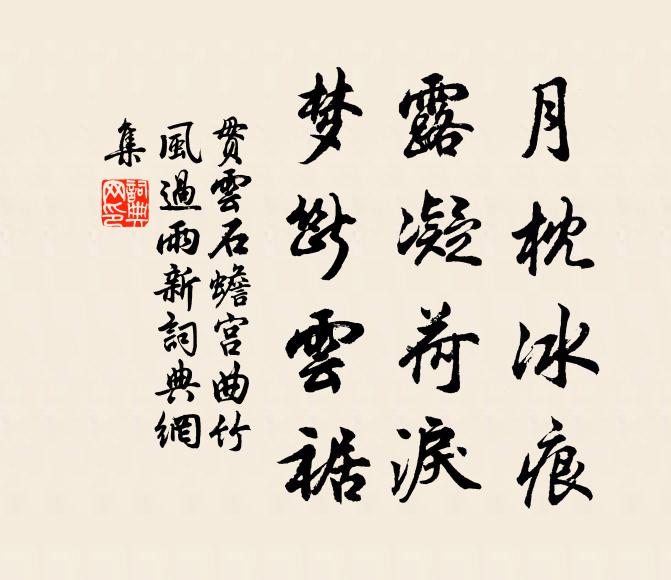 月枕冰痕
露凝荷淚
梦斷雲裾
貫雲石蟾宮曲竹
風過雨新詞典網
集
詞典
网印